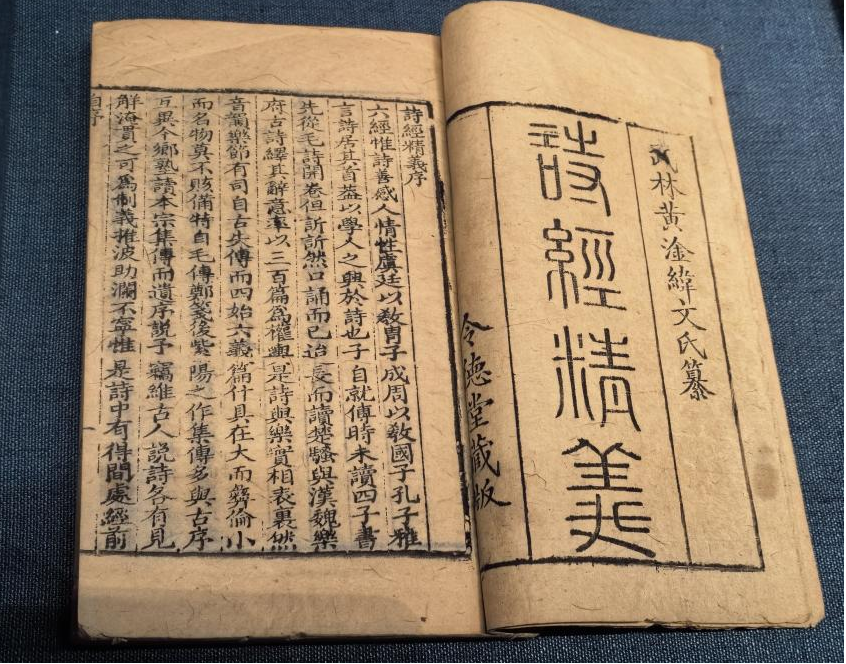 武林黃淦緯文氏纂
詩經精義
令德堂藏版
詩經精義序
六經惟詩善感人情性虞廷以教胄子成周以教國子孔子雅
言詩居其首葢以學人之興於詩也予自就傅時未讀四子書
先從毛詩開卷但訢訢然口誦而已迨長而讀楚騷與漢魏樂
府古詩繹其辭意率以三百篇爲權輿是詩與樂實相表裏然
音韻樂節有司自古失傳而四始六義篇什具在大而彝倫小
而名物莫不賅備特自毛傳鄭箋後紫陽之作集傳多與古序
互異今鄉塾讀本宗集傳而遺序說予竊維古人說詩各有見
解淹貫之可爲制義推波助瀾不寧惟是詩中有得間處經前